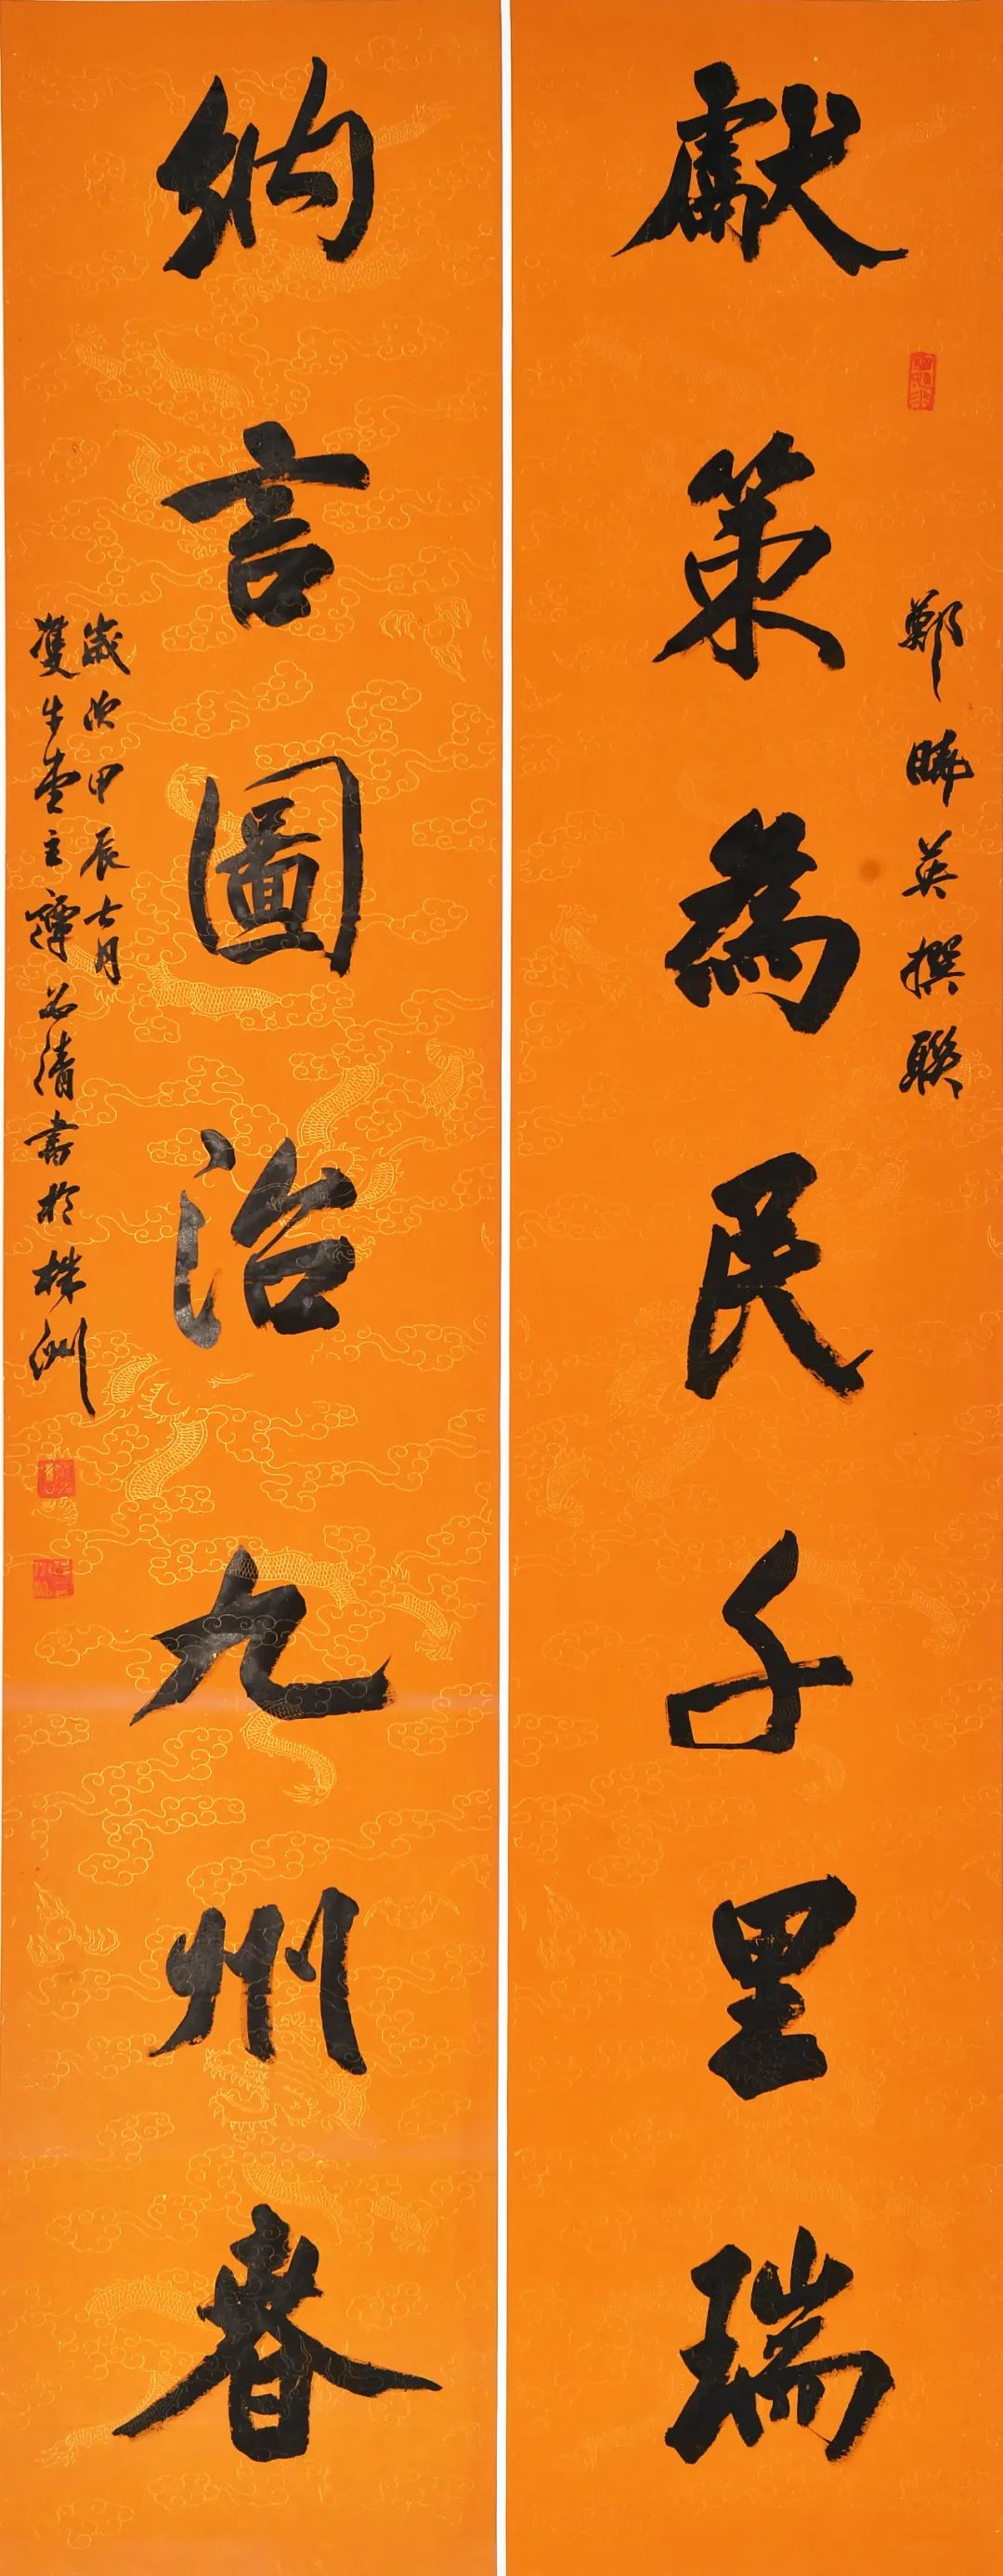 獻策為民千里瑞
鄭曉英撰聯
納言圖治九州春
歲次甲辰七月
雙牛堂主譚石清書於株洲